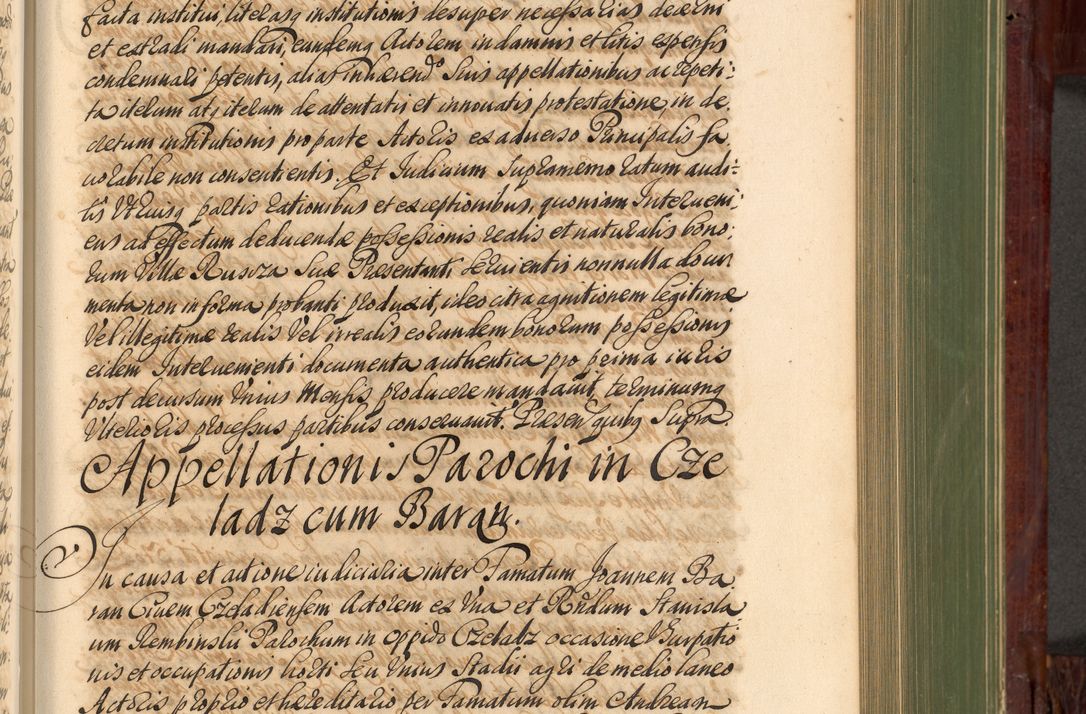 facta institui, literasq institutionis desuper necessarias decerni
et extradi mandari, eundemq Actorem in damnis et litis expensis
condemnari petentis, alias inhaerendo suis appellationibus ac repeti:
ta iterum atq iterum de attentatis et innouatis protestatione, in de
cretum institutionis pro parte Actoris ex aduerso Principalis fa
uorabile non consentientis. Et Judicium supramemoratum audi:
tis Vtriusq partis rationibus et exceptionibus, quoniam Interueni:
ens ad effectum deducendae possessionis realis et naturalis bono:
rum Villae Rusoza suae Praesentanti seruientis nonnulla docu
menta non in forma probanti produxit, ideo citra agnitionem legitimae
Vel illegitimae realis Vel irrealis eorundem bonorum possessionis
eidem Interuenienti documenta authentica pro prima iuris
post decursum Vnius Mensis producere mandauit, terminumq
Vlterioris processus partibus conseruauit. Praesen quibq Supra.
Appellationis Parochi in Cze
ladz cum Baran.
In causa et actione iudiciaria inter Famatum Joannem Ba
ran Ciuem Czeladiensem Actorem ex Vna et Rndum Stanisla
um Rembinski Parochum in oppido Czeladz occasione Vsurpatio
nis et occupationis horti seu Vnius Stadii agri de medio laneo
Actoris proprio et haereditario per Famatum olim Andream